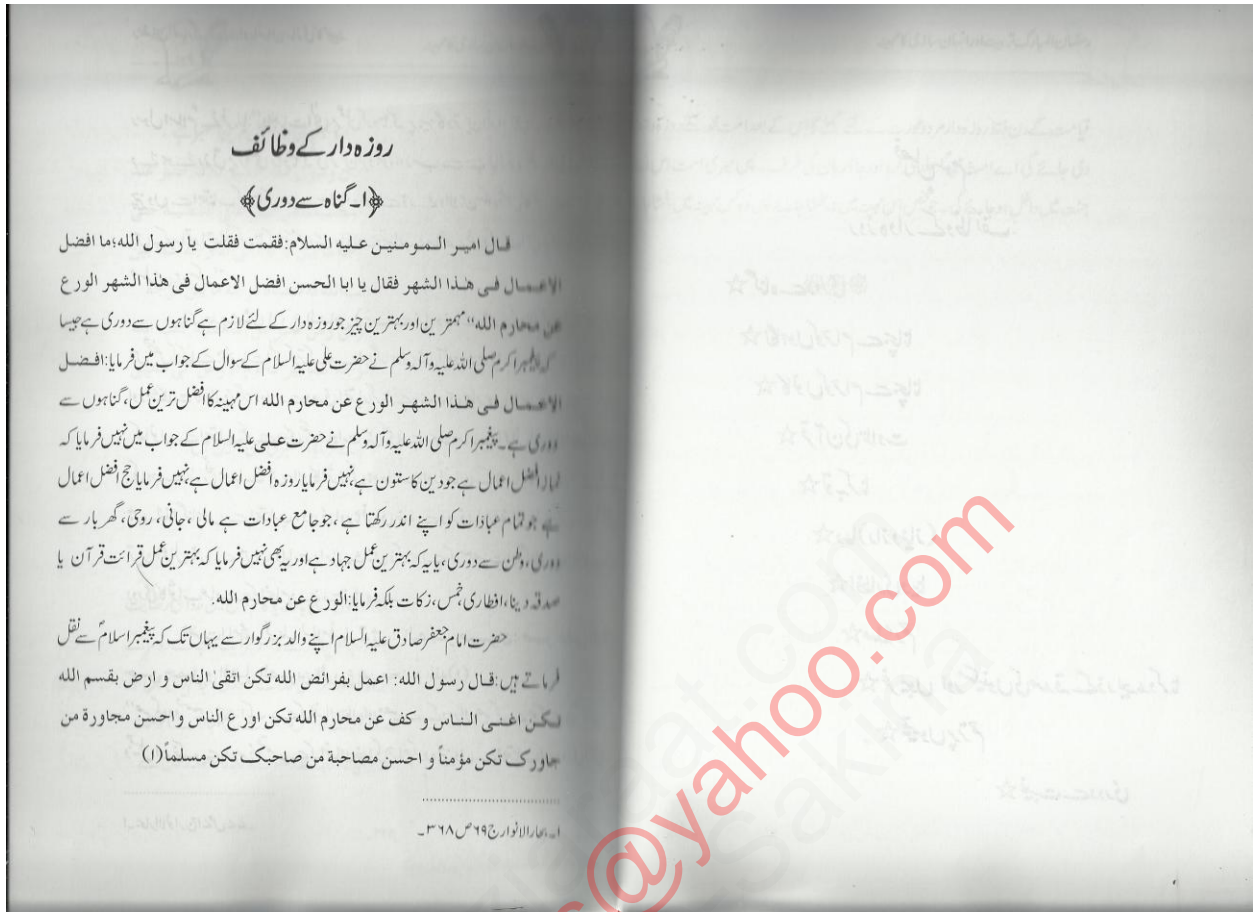 روزہ دار کے وظائف
﴿۱۔ گناہ سے دوری﴾
قال امیر المومنین علیه السلام: فقمت فقلت یا رسول الله؛ ما افضل
الاعمال فی هذا الشهر فقال یا ابا الحسن افضل الاعمال فی هذا الشهر الورع
عن محارم الله“ مہمترین اور بہترین چیز جو روزہ دار کے لئے لازم ہے گناہوں سے دوری ہے جیسا
کہ پیغمبر اکرم صلی اللہ علیہ وآلہ وسلم نے حضرت علی علیہ السلام کے سوال کے جواب میں فرمایا: افضل
الاعمال فی هذا الشهر الورع عن محارم الله اس مہینہ کا افضل ترین عمل، گناہوں سے
دوری ہے۔ پیغمبر اکرم صلی اللہ علیہ وآلہ وسلم نے حضرت علی علیہ السلام کے جواب میں نہیں فرمایا کہ
نماز افضل اعمال ہے جو دین کا ستون ہے، نہیں فرمایا روزہ افضل اعمال ہے، نہیں فرمایا حج افضل اعمال
ہے جو تمام عبادات کو اپنے اندر رکھتا ہے، جو جامع عبادات ہے مالی، جانی، روحی، گھر بار سے
دوری، وطن سے دوری، یا یہ کہ بہترین عمل جہاد ہے اور یہ بھی نہیں فرمایا کہ بہترین عمل قرائت قرآن یا
صدقہ دینا، افطاری، خمس، زکات بلکہ فرمایا: الورع عن محارم الله.
حضرت امام جعفر صادق علیہ السلام اپنے والد بزرگوار سے یہاں تک کہ پیغمبر اسلامؐ سے نقل
فرماتے ہیں: قال رسول الله: اعمل بفرائض الله تکن اتقیٰ الناس و ارض بقسم الله
تکن اغنی الناس و کف عن محارم الله تکن اورع الناس واحسن مجاورة من
جاورک تکن مؤمناً و احسن مصاحبة من صاحبک تکن مسلماً(۱)
۱۔ بحار الانوار ج ۶۹ ص ۳۶۸۔
@yahoo.com
Sakina